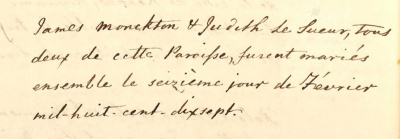 James Monckton & Judith Le Sueur, tous
deux de cette Paroisse, furent mariés
ensemble le seizième jour de Février
mil-huit-cent-dixsept.